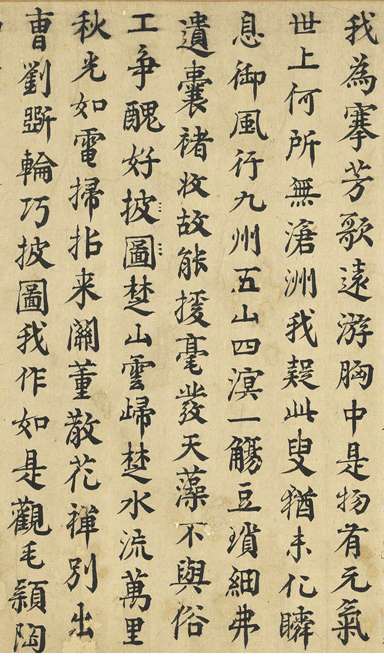 我為搴芳歌遠游胸中是物有元氣
世上何所無滄洲我疑此叟猶未化瞬
息御風行九州五山四溟一觴豆瑣細弗
遺囊褚收故能援毫發天藻不與俗
工爭醜好披圖楚山雲歸楚水流萬里
秋光如電掃指来關董散花禪別出
曹劉斲輪巧披圖我作如是觀毛穎陶